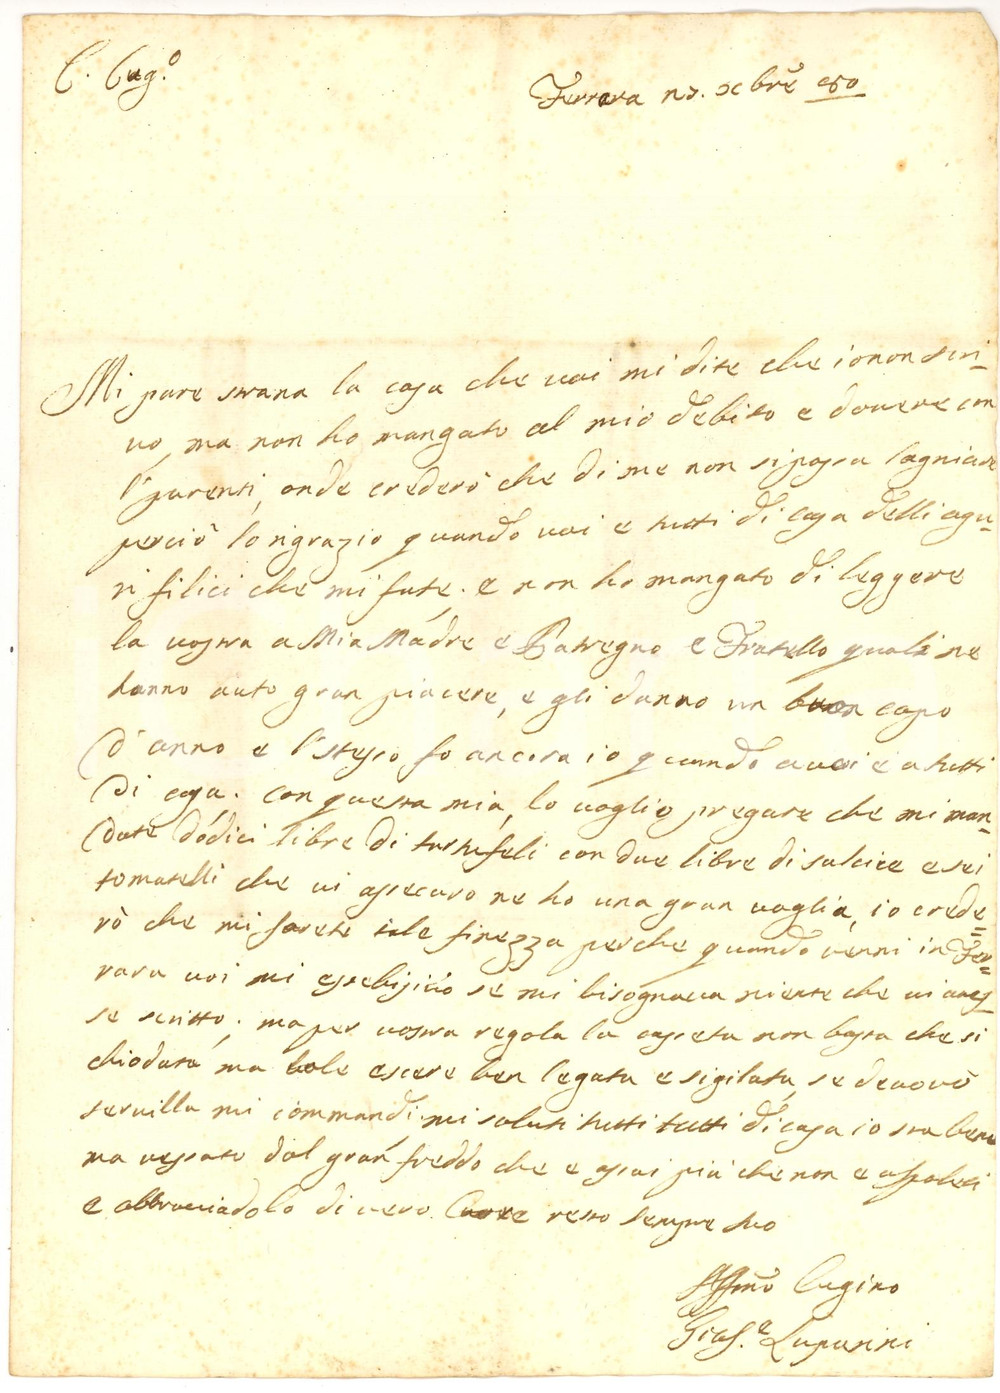 C. Cug.º
Ferrara xbre
Mi pare strana la cosa che voi mi dite che io non scri-
vo, ma non ho mangato al mio debito e dovere con
l'parenti, onde crederò che di me non si possa lagniare
perciò lo rigrazio quando voi e tutti di casa delli agu-
ri filici che mi fate. e non ho mangato di leggere
la vostra a Mia Madre e Patregno e Fratello quali ne
hanno auto gran piacere, e gli danno un buon capo
d'anno e l'stesso fo ancora io quando a voi e a tutti
di casa. con questa mia, lo voglio pregare che mi man-
date dodici libre di tartufeli con due libre di salcice e sei
tomatelli che vi assecuro ne ho una gran voglia, io crede=
rò che mi farete tale finezza perche quando venni in Fer=
rara voi mi essebissicio se mi bisognava niente che vi aves
se scritto, ma per vostra regola la casseta non basta che si
chiodata ma vole escere ben legata e sigilata, se devovò
servilla mi commandi. mi saluti tutti tutti di casa io sta bene
ma vessato dal gran freddo che e assai più che non e a spoleti
e abbracciadolo di vero Cuore resto sempre suo
Affmo Cugino
Gius.e Lupanini